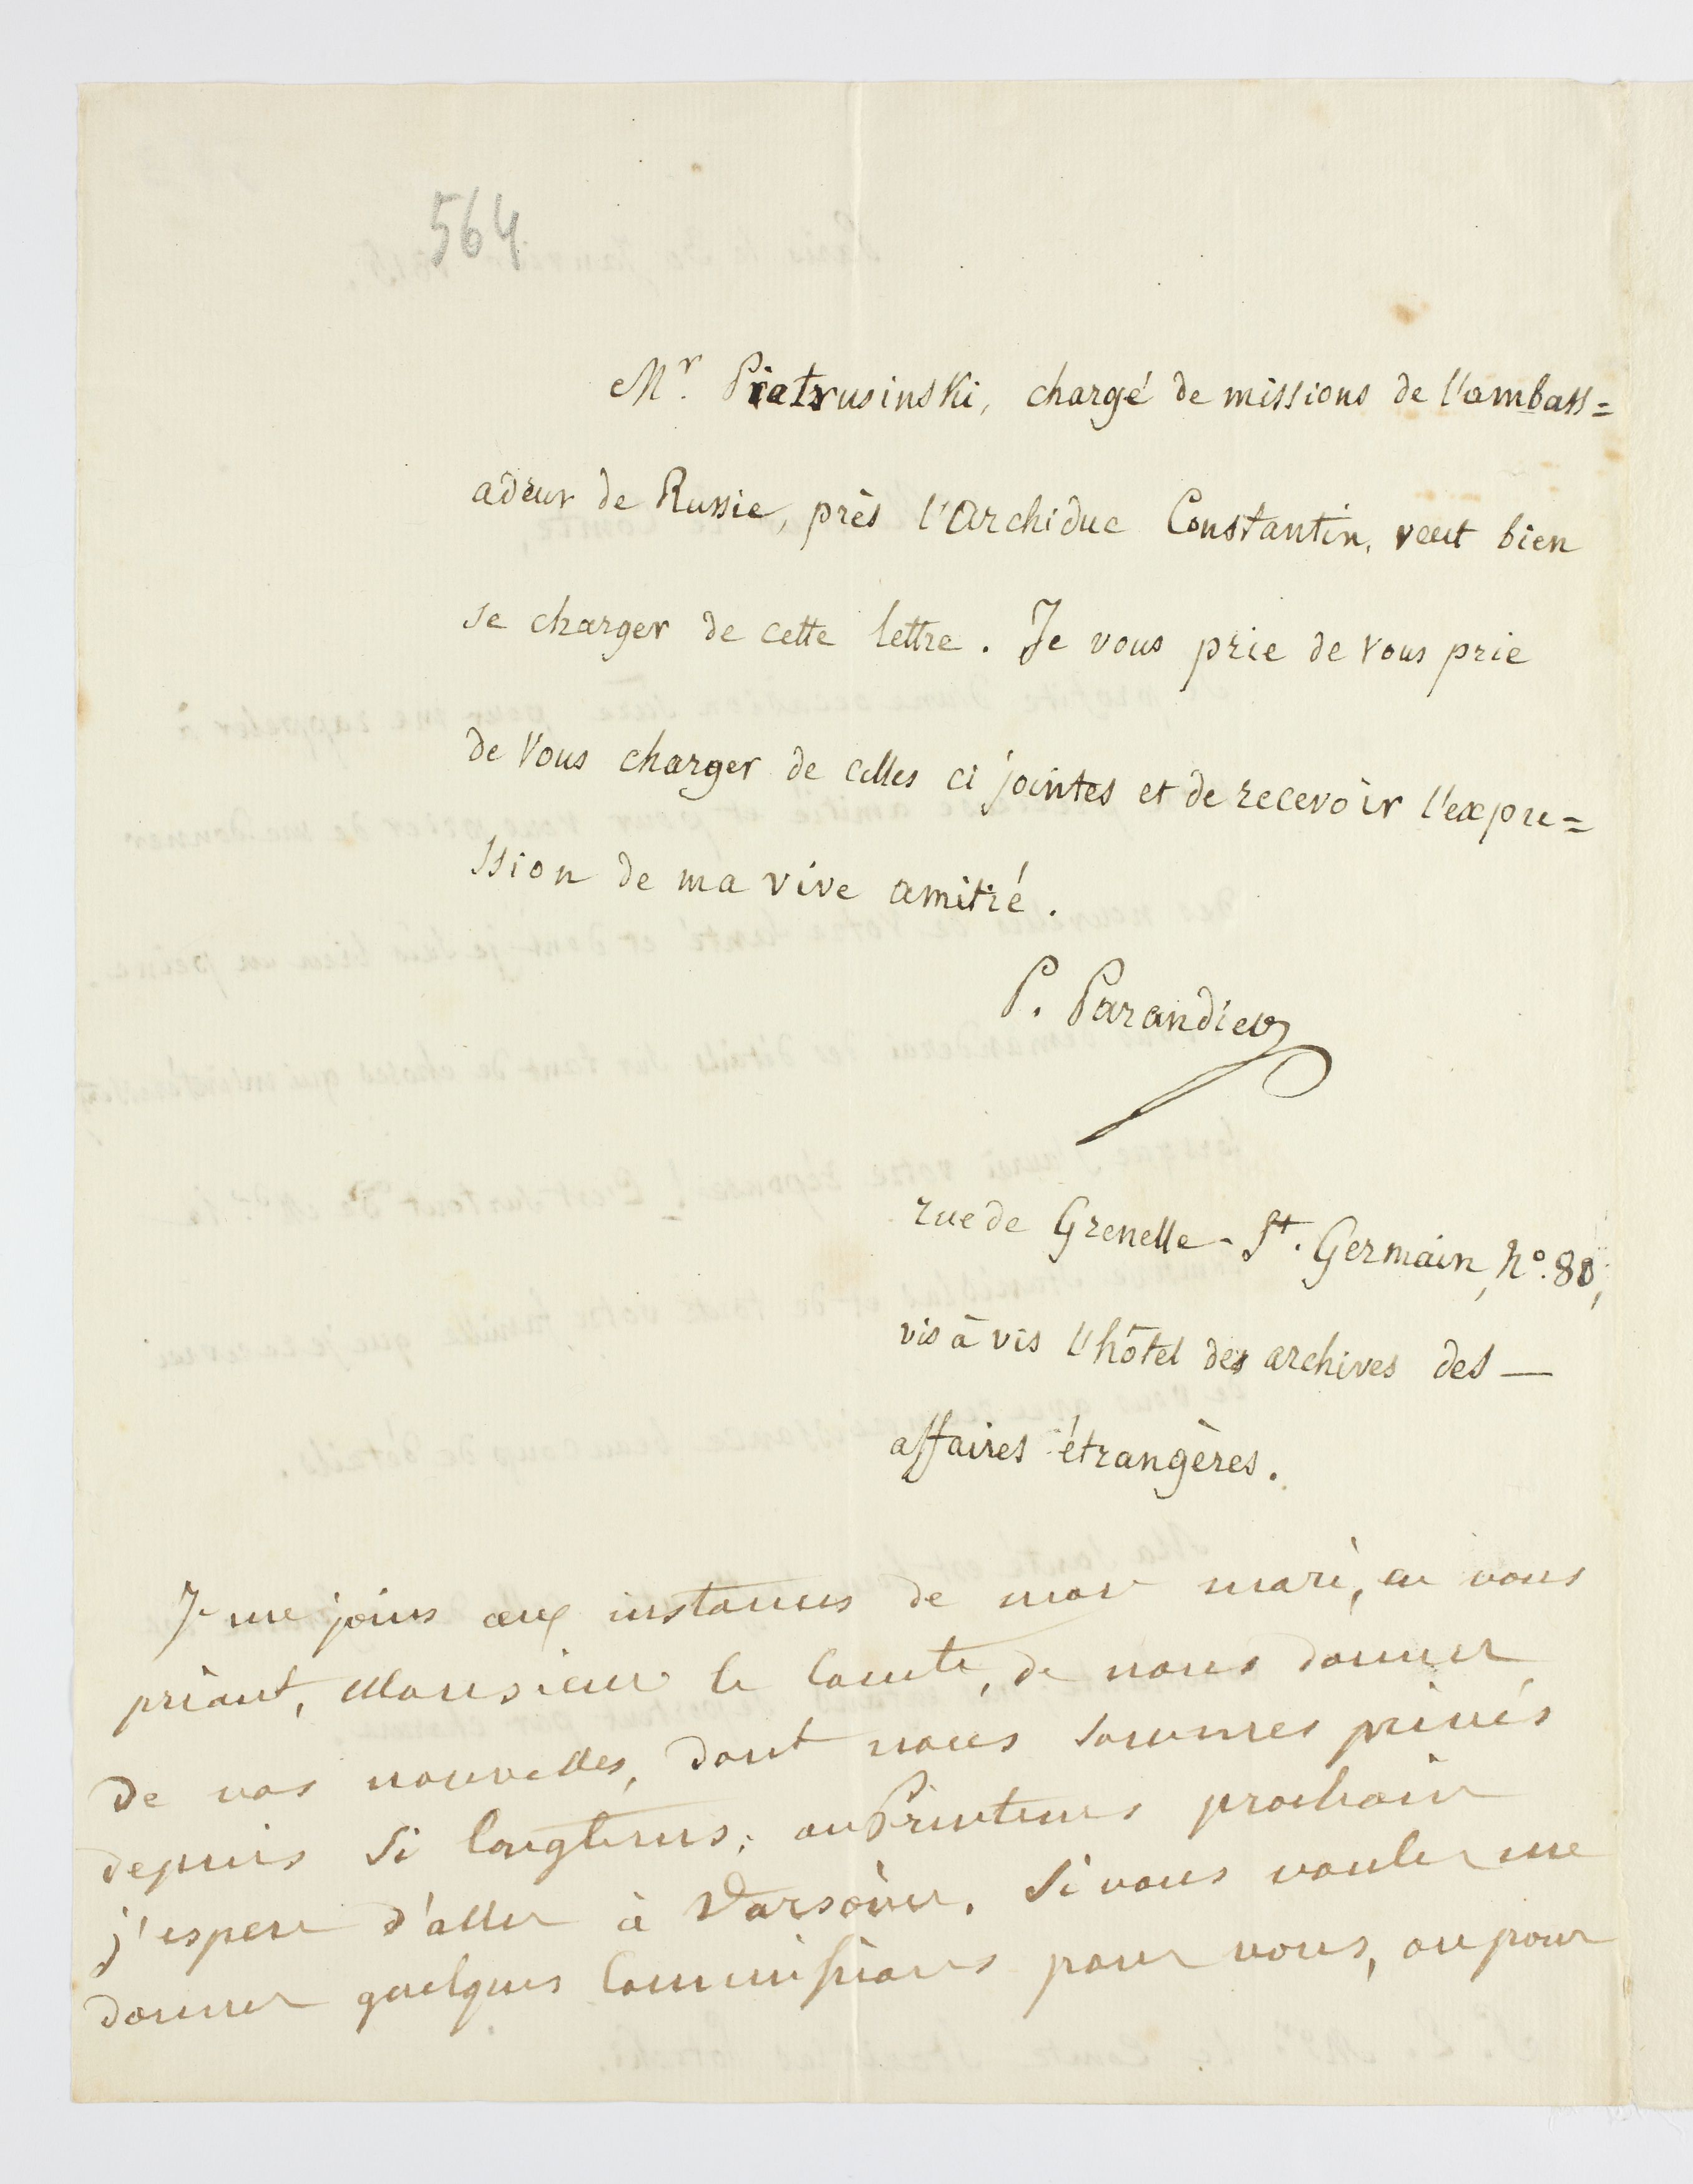 564
Mr. Piatrusinski, chargé de missions de l'ambass=
adeur de Russie, près l'Archiduc Constantin, veut bien
se charger de cette lettre. Je vous prie de vous prie
de vous charger de celles ci jointes et de recevoir l'expre=
ssion de ma vive amitié.
P. Parandier
rue de Grenelle-St. Germain, No. 80,
vis à vis l'hôtel des archives des —
affaires étrangères.
Je me joins aux instances de mon mari, en vous
priant, Monsieur le Comte, de nous donner
de vos nouvelles, dont nous sommes privés
depuis si longtems; au Printems prochain
j'espere d'aller à Varsovie. Si vous voulez me
donner quelques Commissions pour vous, ou pour